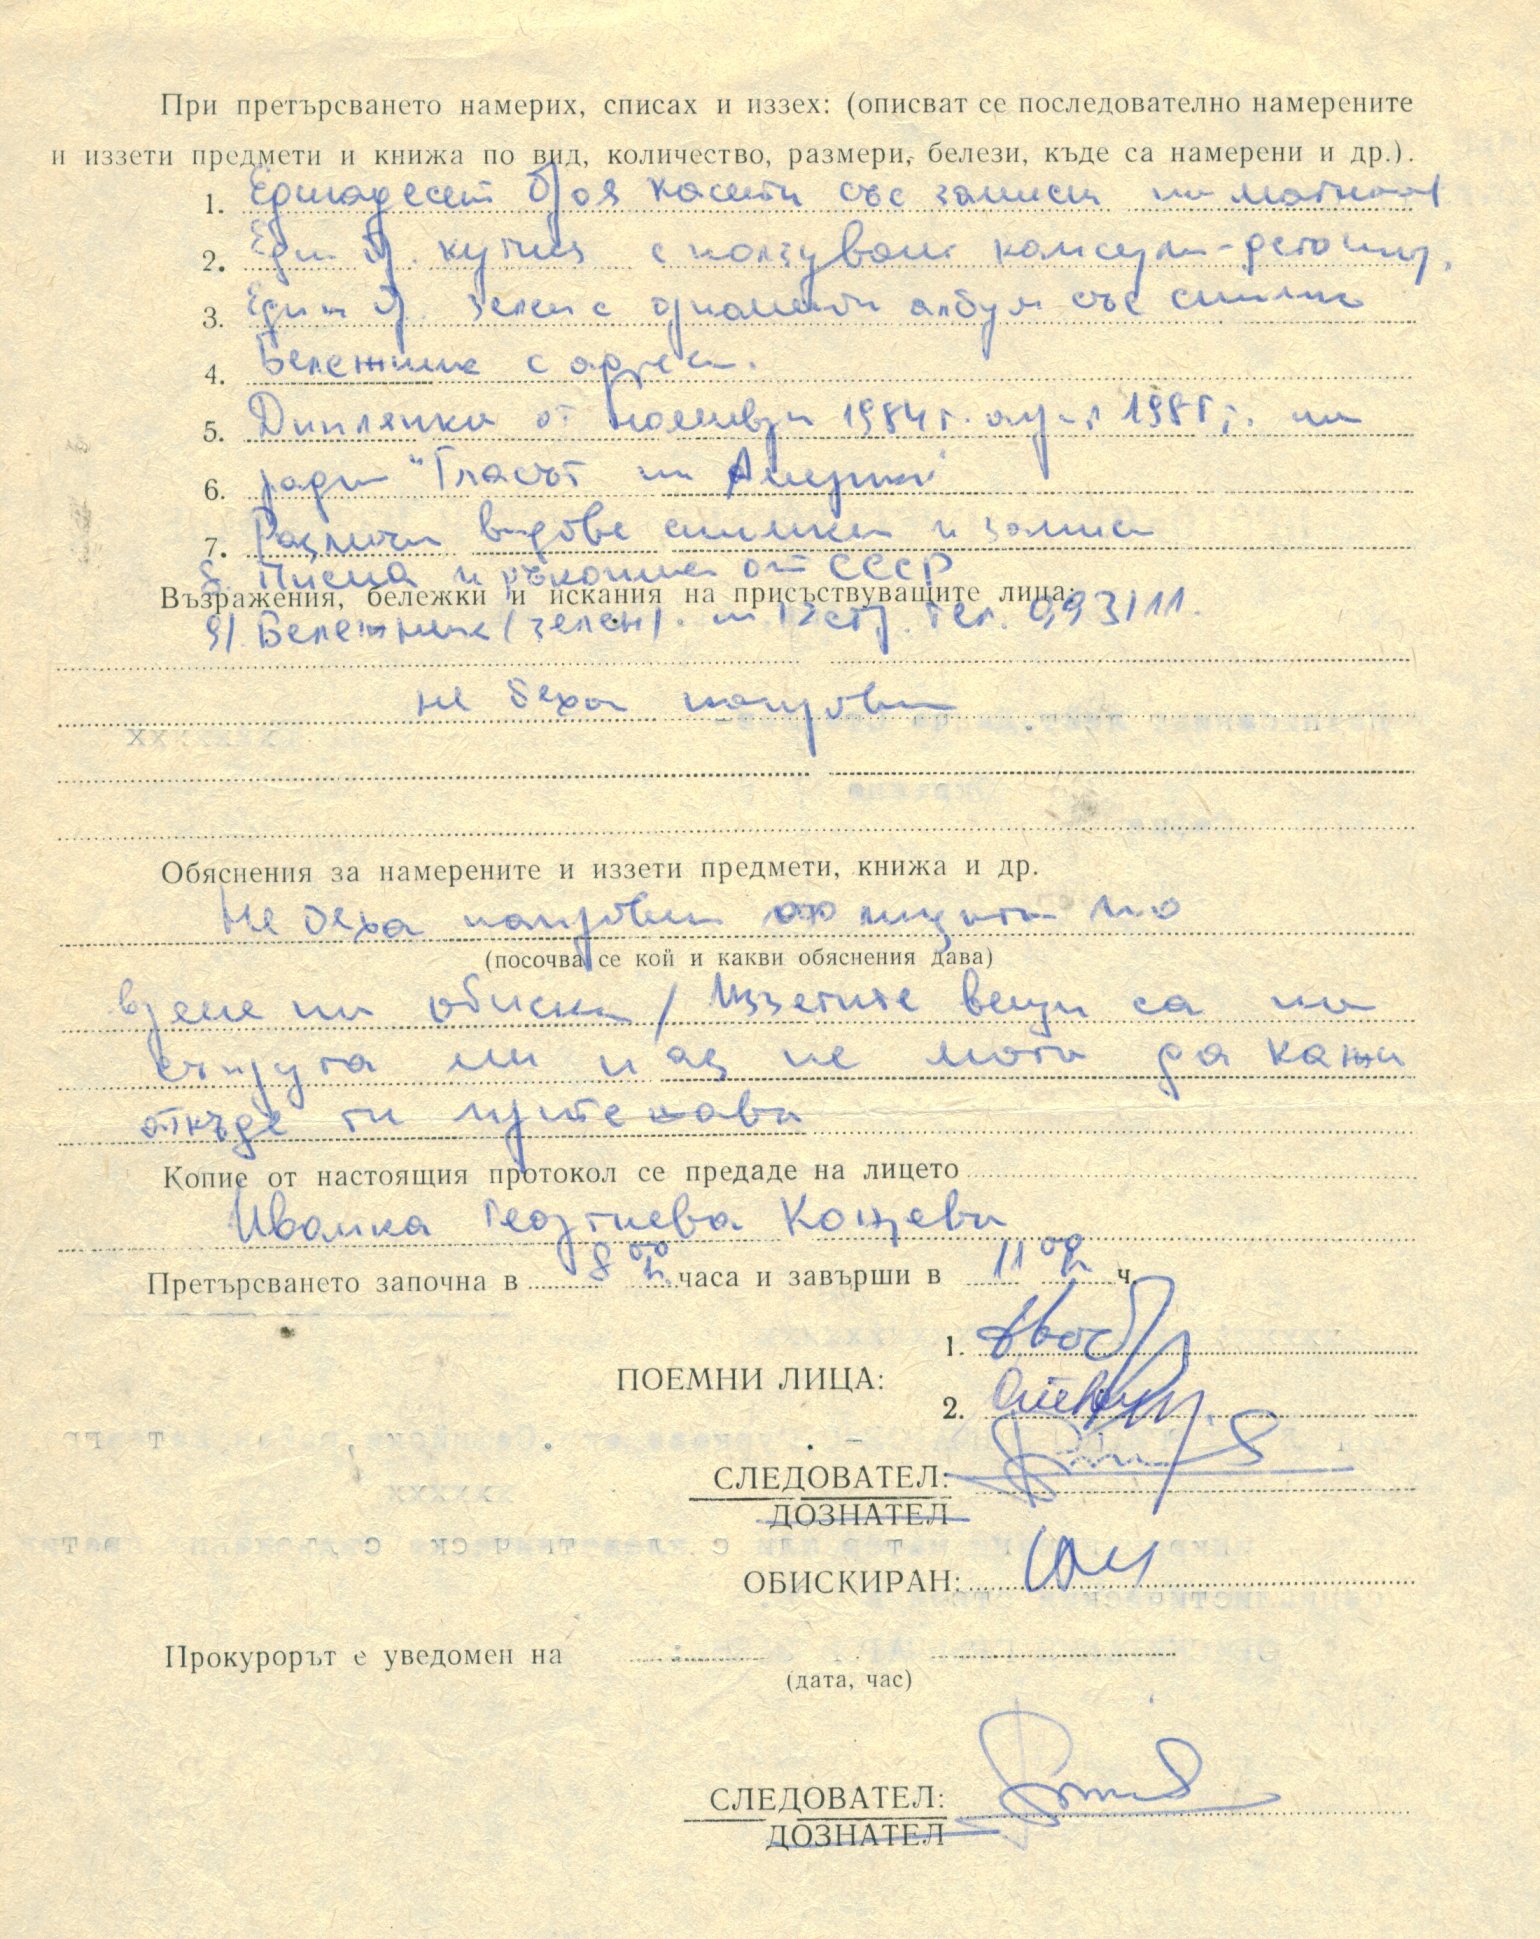 При претърсването намерих, списах и иззех: (описват се последователно намерените
и иззети предмети и книжа по вид, количество, размери, белези, къде са намерени и др.).
1. Единадесет броя касети със записи на
2. Един бр. кутия с капсули-детонатор.
3. Един бр. зелен с албум със снимки
4. Бележник с адреси.
5. Диплянка от ноември 1984 г. април 1985 г. на
6. радио "Гласът на Америка"
7. Различни видове снимки и записи
8. Писма и ръкописи от СССР
Възражения, бележки и искания на присъствуващите лица:
9/. Бележник (зелен). на 12 стр. тел. 093/11.
не беха направени
Обяснения за намерените и иззети предмети, книжа и др.
Не беха направени от лицата по
(посочва се кой и какви обяснения дава)
време на обиска / Иззетите вещи са на
съпруга ми и аз не мога да кажа
откъде ги притежава
Копие от настоящия протокол се предаде на лицето
Иванка Георгиева
Претърсването започна в 8 00 часа и завърши в 11 00 ч.
1.
ПОЕМНИ ЛИЦА:
2.
СЛЕДОВАТЕЛ:
ДОЗНАТЕЛ
ОБИСКИРАН:
Прокурорът е уведомен на
(дата, час)
СЛЕДОВАТЕЛ:
ДОЗНАТЕЛ